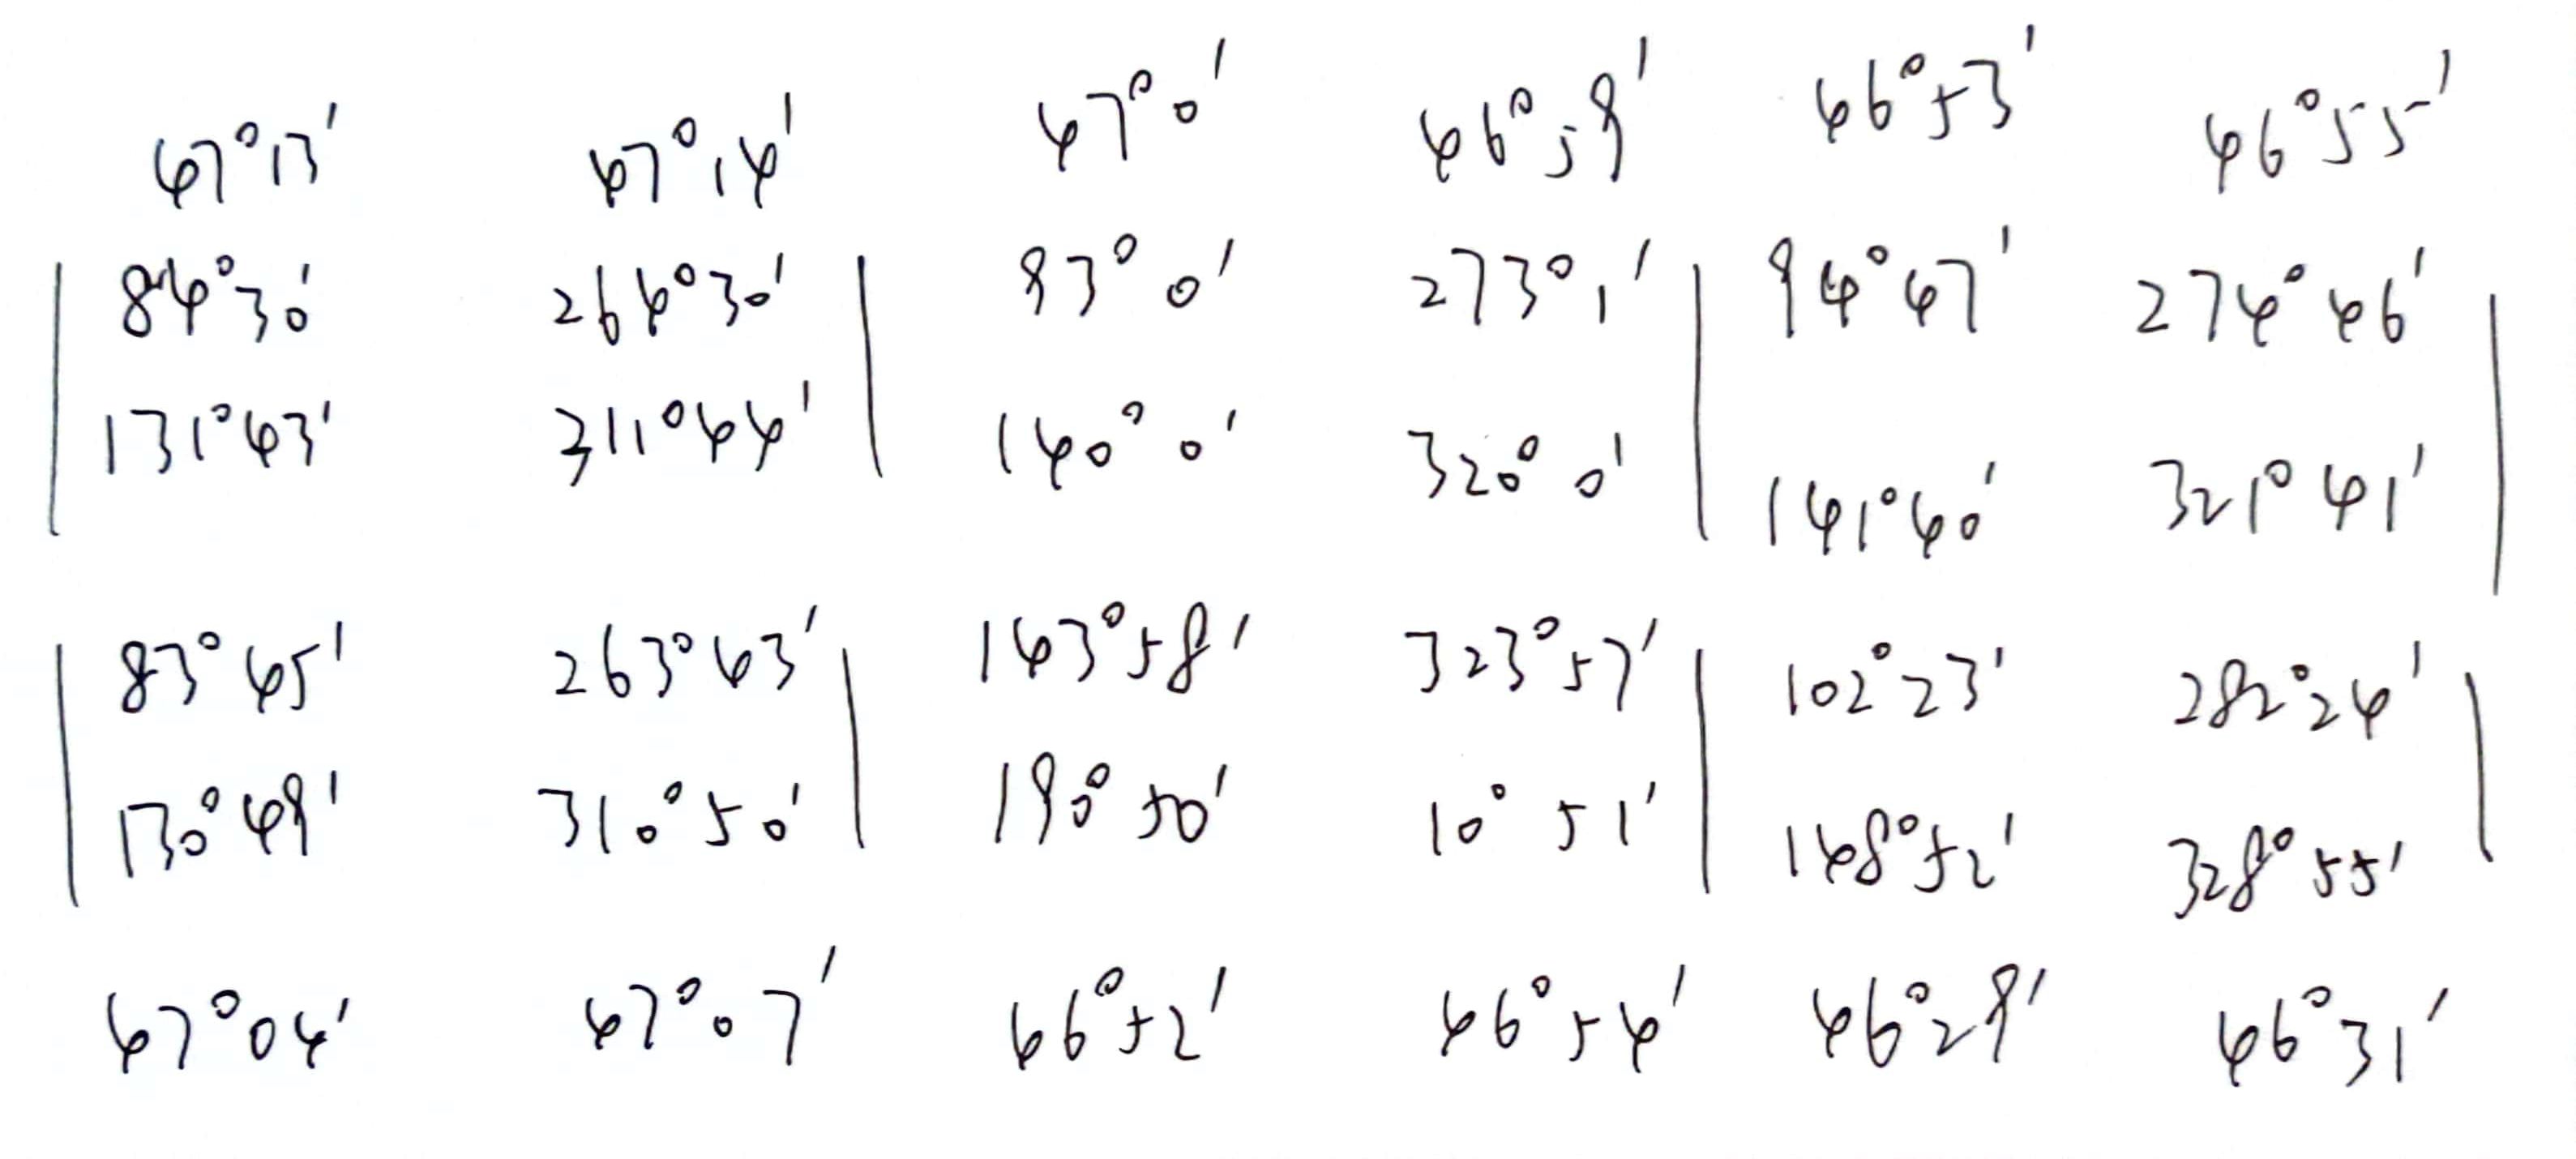 47°13' 47°14' 47°0' 46°59' 46°53' 46°55'
84°30' 264°30' 93°0' 273°1' 94°47' 274°46'
131°43' 311°44' 140°0' 320°0' 141°40' 321°41'
83°45' 263°43' 143°58' 323°57' 102°23' 282°24'
130°49' 310°50' 190°50' 10°51' 148°52' 328°55'
47°04' 47°07' 46°52' 46°54' 46°29' 46°31'